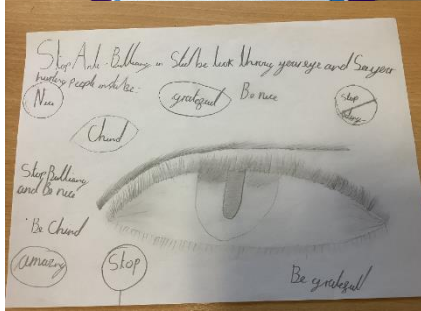 Stop Anti-Bullying in Stead be look throug your eye and Say your
hurting people in stead be.
Nice
grategud
Be nice
Stop
Chind
Stop Bulliung
and Be nice
Be Chind
amazing
Stop
Be grategud